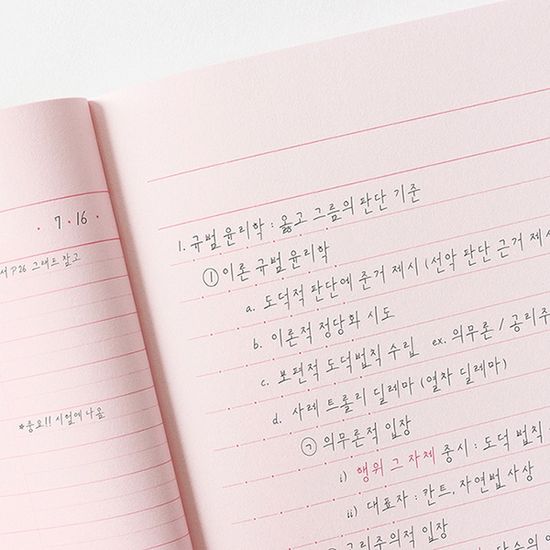 · 7. 16 ·
서 P26 그래프 참고
*중요!! 시험에 나옴
1. 규범 윤리학 : 옳고 그름의 판단 기준
① 이론 규범 윤리학
a. 도덕적 판단에 준거 제시 (선악 판단 근거 제시
b. 이론적 정당화 시도
c. 보편적 도덕법칙 수립 ex. 의무론 / 공리주
d. 사례 트롤리 딜레마 (열차 딜레마)
㉠ 의무론적 입장
i) 행위 그 자체 중시 : 도덕 법칙
ii) 대표자 : 칸트, 자연법 사상
공리주의적 입장